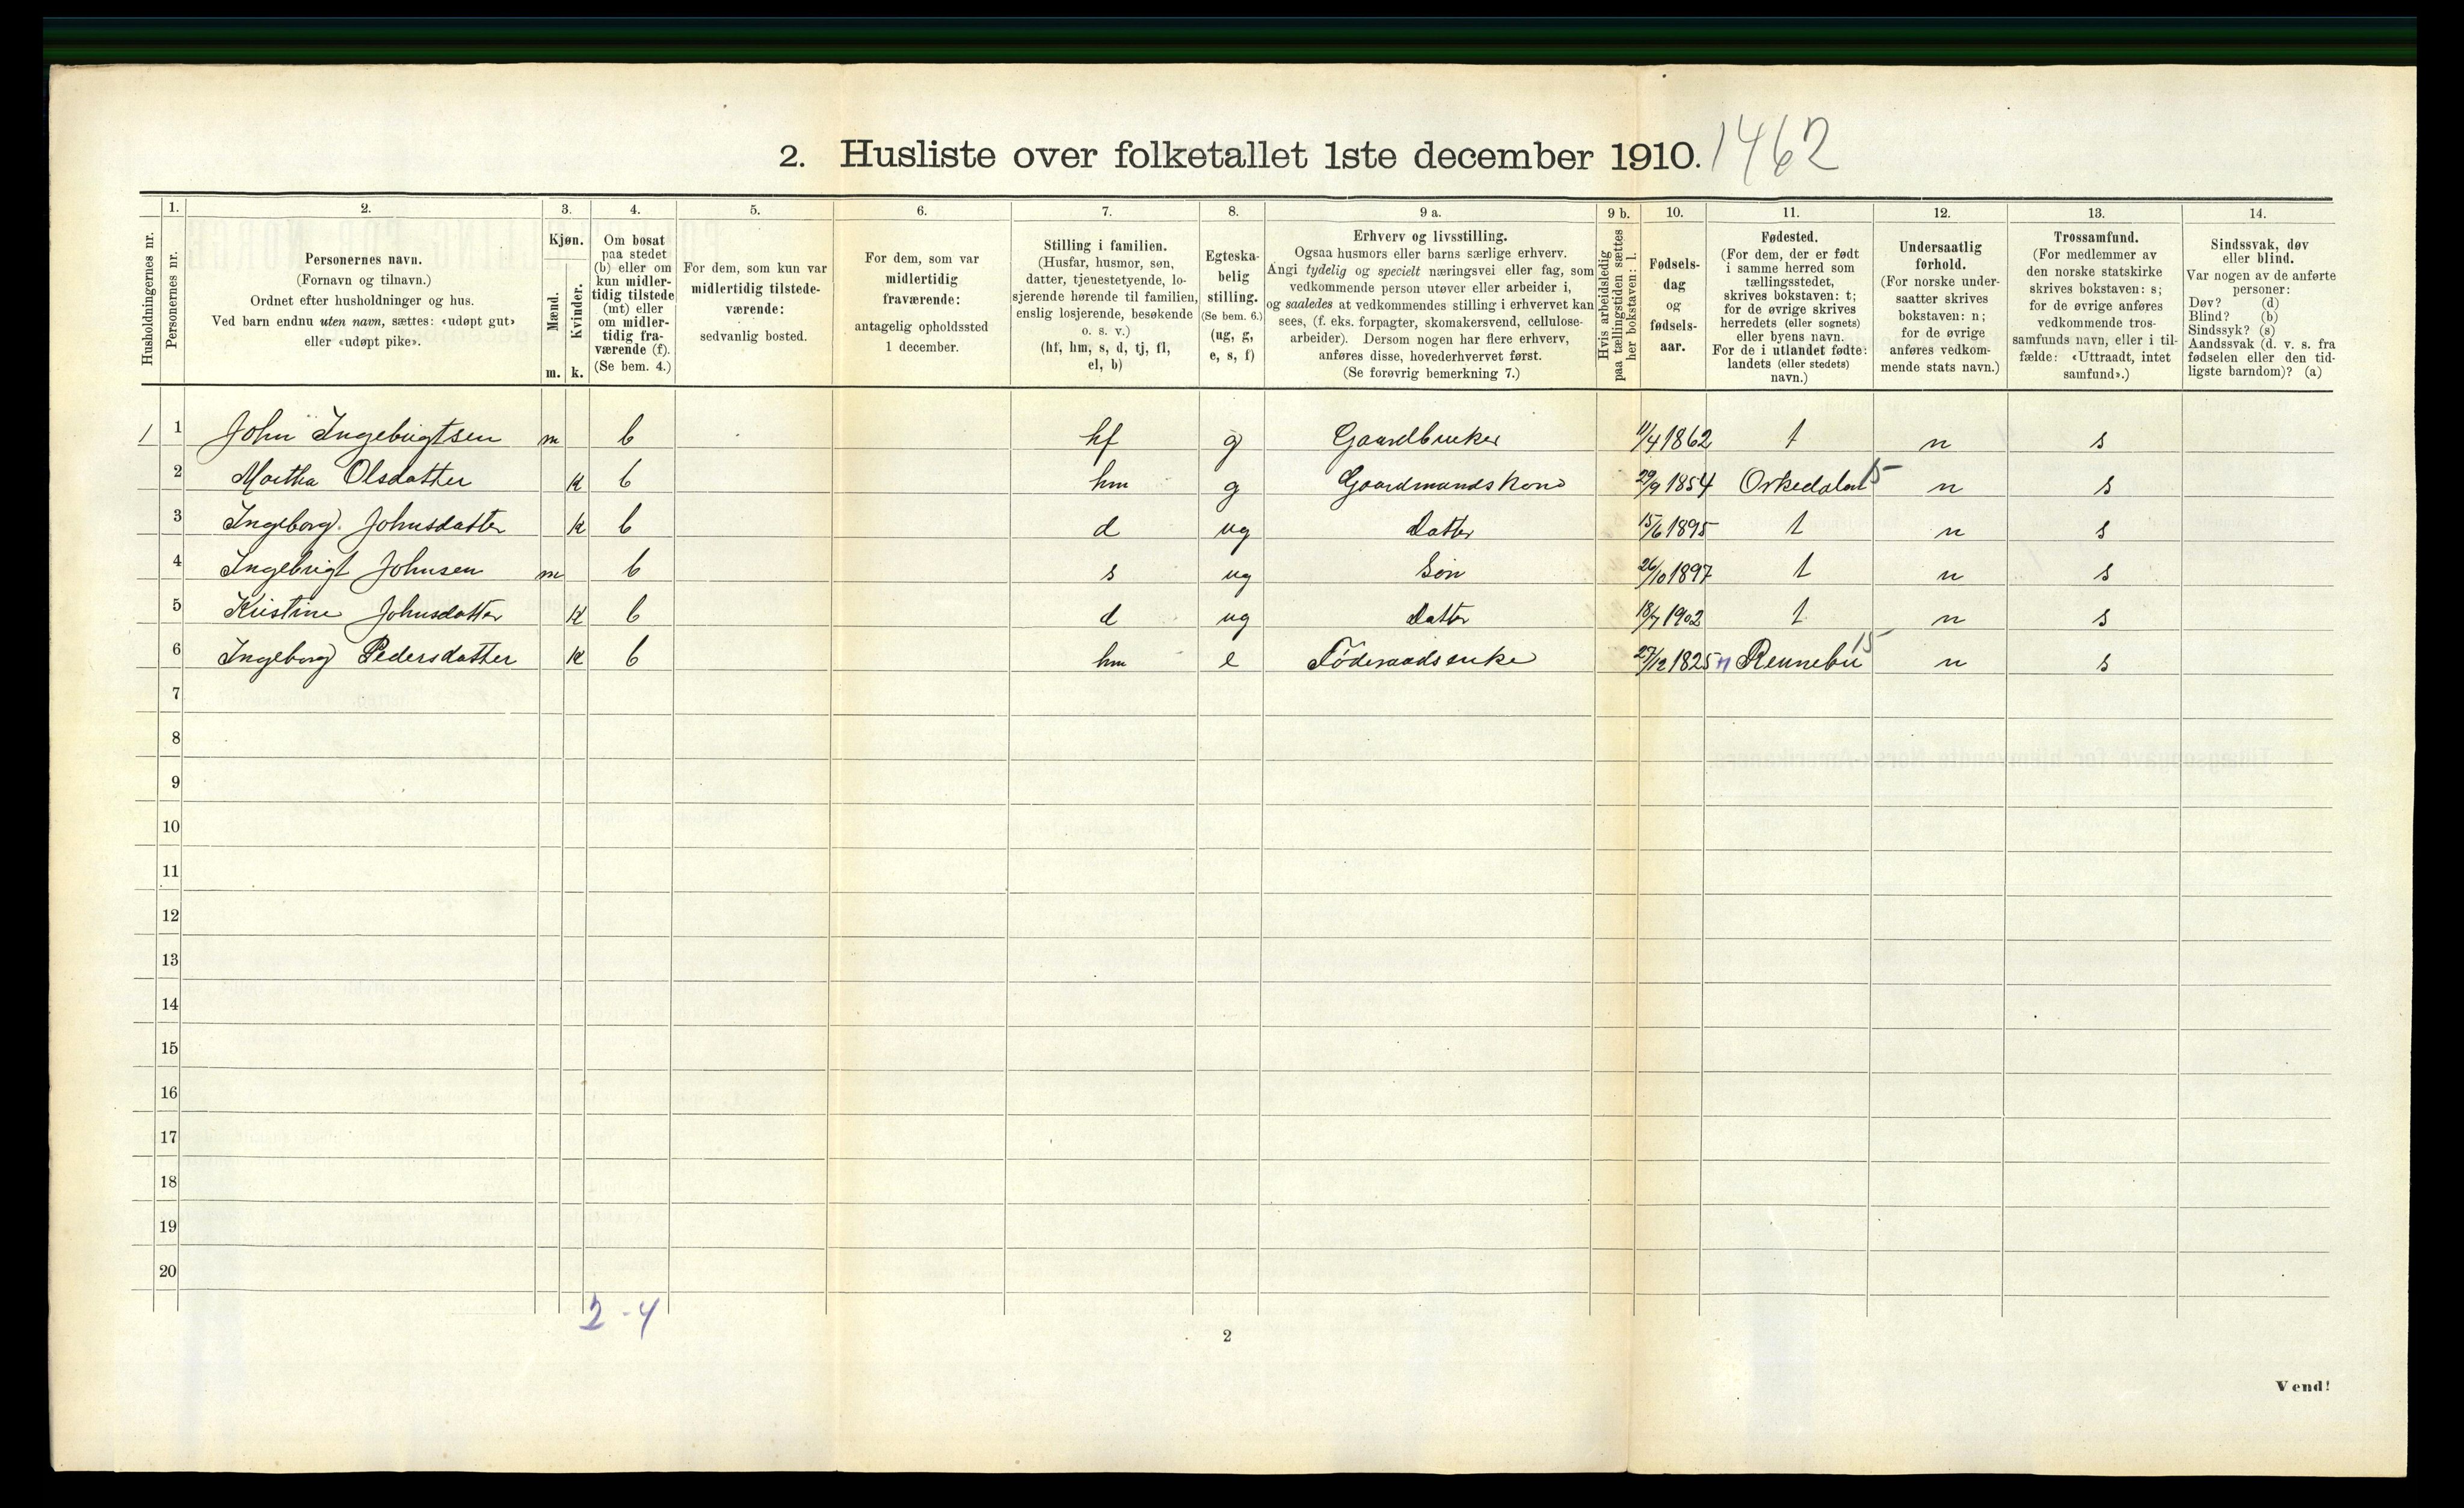 2. Husliste over folketallet 1ste december 1910. 1462
Husholdningernes nr.
1. Personernes nr.
2. Personernes navn.
(Fornavn og tilnavn.)
Ordnet efter husholdninger og hus.
Ved barn endnu uten navn, sættes: «udøpt gut»
eller «udøpt pike».
3. Kjøn.
Mænd. m.
Kvinder. k.
4. Om bosat
paa stedet
(b) eller om
kun midler-
tidig tilstede
(mt) eller
om midler-
tidig fra-
værende (f).
(Se bem. 4.)
5. For dem, som kun var
midlertidig tilstede-
værende:
sedvanlig bosted.
6. For dem, som var
midlertidig
fraværende:
antagelig opholdssted
1 december.
7. Stilling i familien.
(Husfar, husmor, søn,
datter, tjenestetyende, lo-
sjerende hørende til familien,
enslig losjerende, besøkende
o. s. v.)
(hf, hm, s, d, tj, fl,
el, b)
8. Egteska-
belig
stilling.
(Se bem. 6.)
(ug, g,
e, s, f)
9 a. Erhverv og livsstilling.
Ogsaa husmors eller barns særlige erhverv.
Angi tydelig og specielt næringsvei eller fag, som
vedkommende person utøver eller arbeider i,
og saaledes at vedkommendes stilling i erhvervet kan
sees, (f. eks. forpagter, skomakersvend, cellulose-
arbeider). Dersom nogen har flere erhverv,
anføres disse, hovederhvervet først.
(Se forøvrig bemerkning 7.)
9 b. Hvis arbeidsledig
paa tællingstiden sættes
her bokstaven: l.
10. Fødsels-
dag
og
fødsels-
aar.
11. Fødested.
(For dem, der er født
i samme herred som
tællingsstedet,
skrives bokstaven: t;
for de øvrige skrives
herredets (eller sognets)
eller byens navn.
For de i utlandet fødte:
landets (eller stedets)
navn.)
12. Undersaatlig
forhold.
(For norske under-
saatter skrives
bokstaven: n;
for de øvrige
anføres vedkom-
mende stats navn.)
13. Trossamfund.
(For medlemmer av
den norske statskirke
skrives bokstaven: s;
for de øvrige anføres
vedkommende tros-
samfunds navn, eller i til-
fælde: «Uttraadt, intet
samfund».)
14. Sindssvak, døv
eller blind.
Var nogen av de anførte
personer:
Døv? (d)
Blind? (b)
Sindssyk? (s)
Aandssvak (d. v. s. fra
fødselen eller den tid-
ligste barndom)? (a)
1 1 John Ingebrigtsen m b hf g Gaardbruker 11/4 1862 t n s
2 Martha Olsdatter k b hm g Gaardmandskone 29/9 1854 Orkedalen 15 n s
3 Ingeborg Johnsdatter k b d ug Datter 15/6 1895 t n s
4 Ingebrigt Johnsen m b s ug Søn 26/10 1897 t n s
5 Kristine Johnsdatter k b d ug Datter 18/7 1902 t n s
6 Ingeborg Pedersdatter k b hm e Føderaadsenke 27/12 1825 n Rennebu 15 n s
7
8
9
10
11
12
13
14
15
16
17
18
19
20
2 - 4
2
Vend!